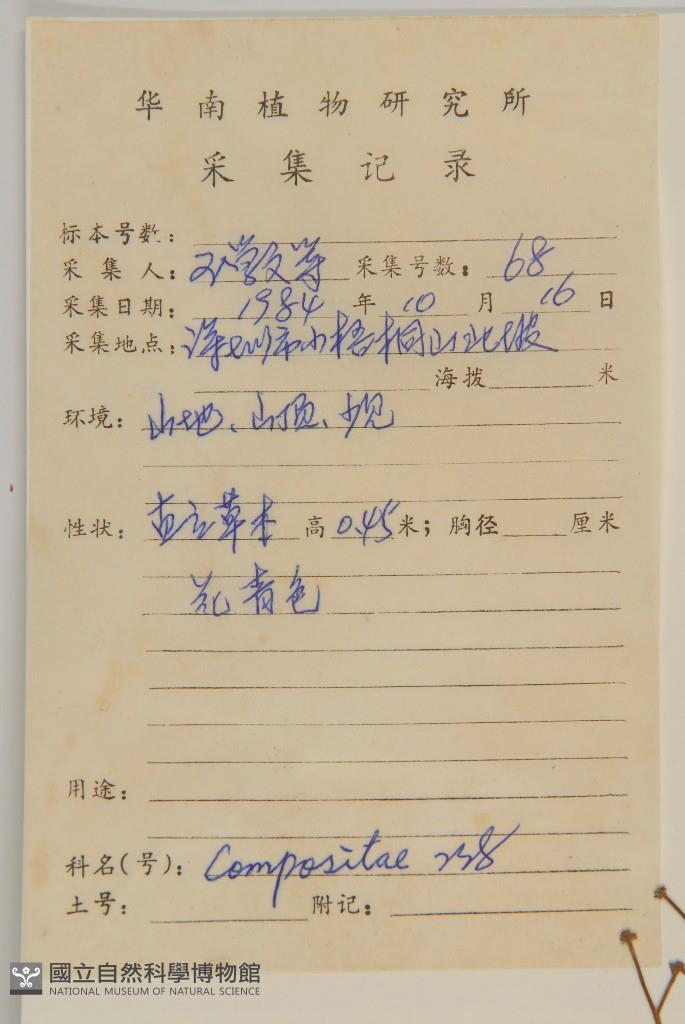 华南植物研究所
采集记录
标本号数：
采集人： 王学文等 采集号数： 68
采集日期： 1984 年 10 月 16 日
采集地点： 深圳市小梧桐山北坡
海拨 米
环境： 山地、山顶、少见
性状： 直立草本 高 0.45 米； 胸径 厘米
花青色
用途：
科名(号)： Compositae 238
土号： 附记：
國立自然科學博物館
NATIONAL MUSEUM OF NATURAL SCIENCE